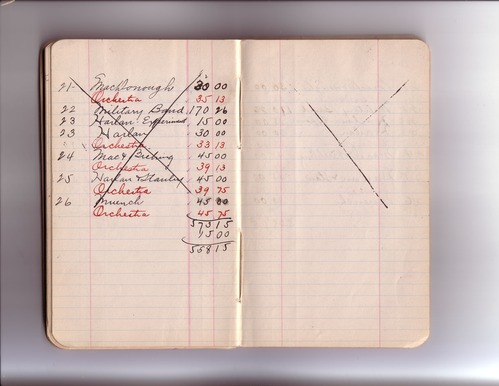 21 MacDonough 30 00
Orchestra 35 13
22 Military Band 170 26
23 Harlan Experiment 15 00
23 Harlan 30 00
Orchestra 33 13
24 Mac & Biehing 45 00
Orchestra 39 13
25 Harlan & Stanley 45 00
Orchestra 39 75
26 Muench 45 00
Orchestra 45 75
573 15
15 00
558 15